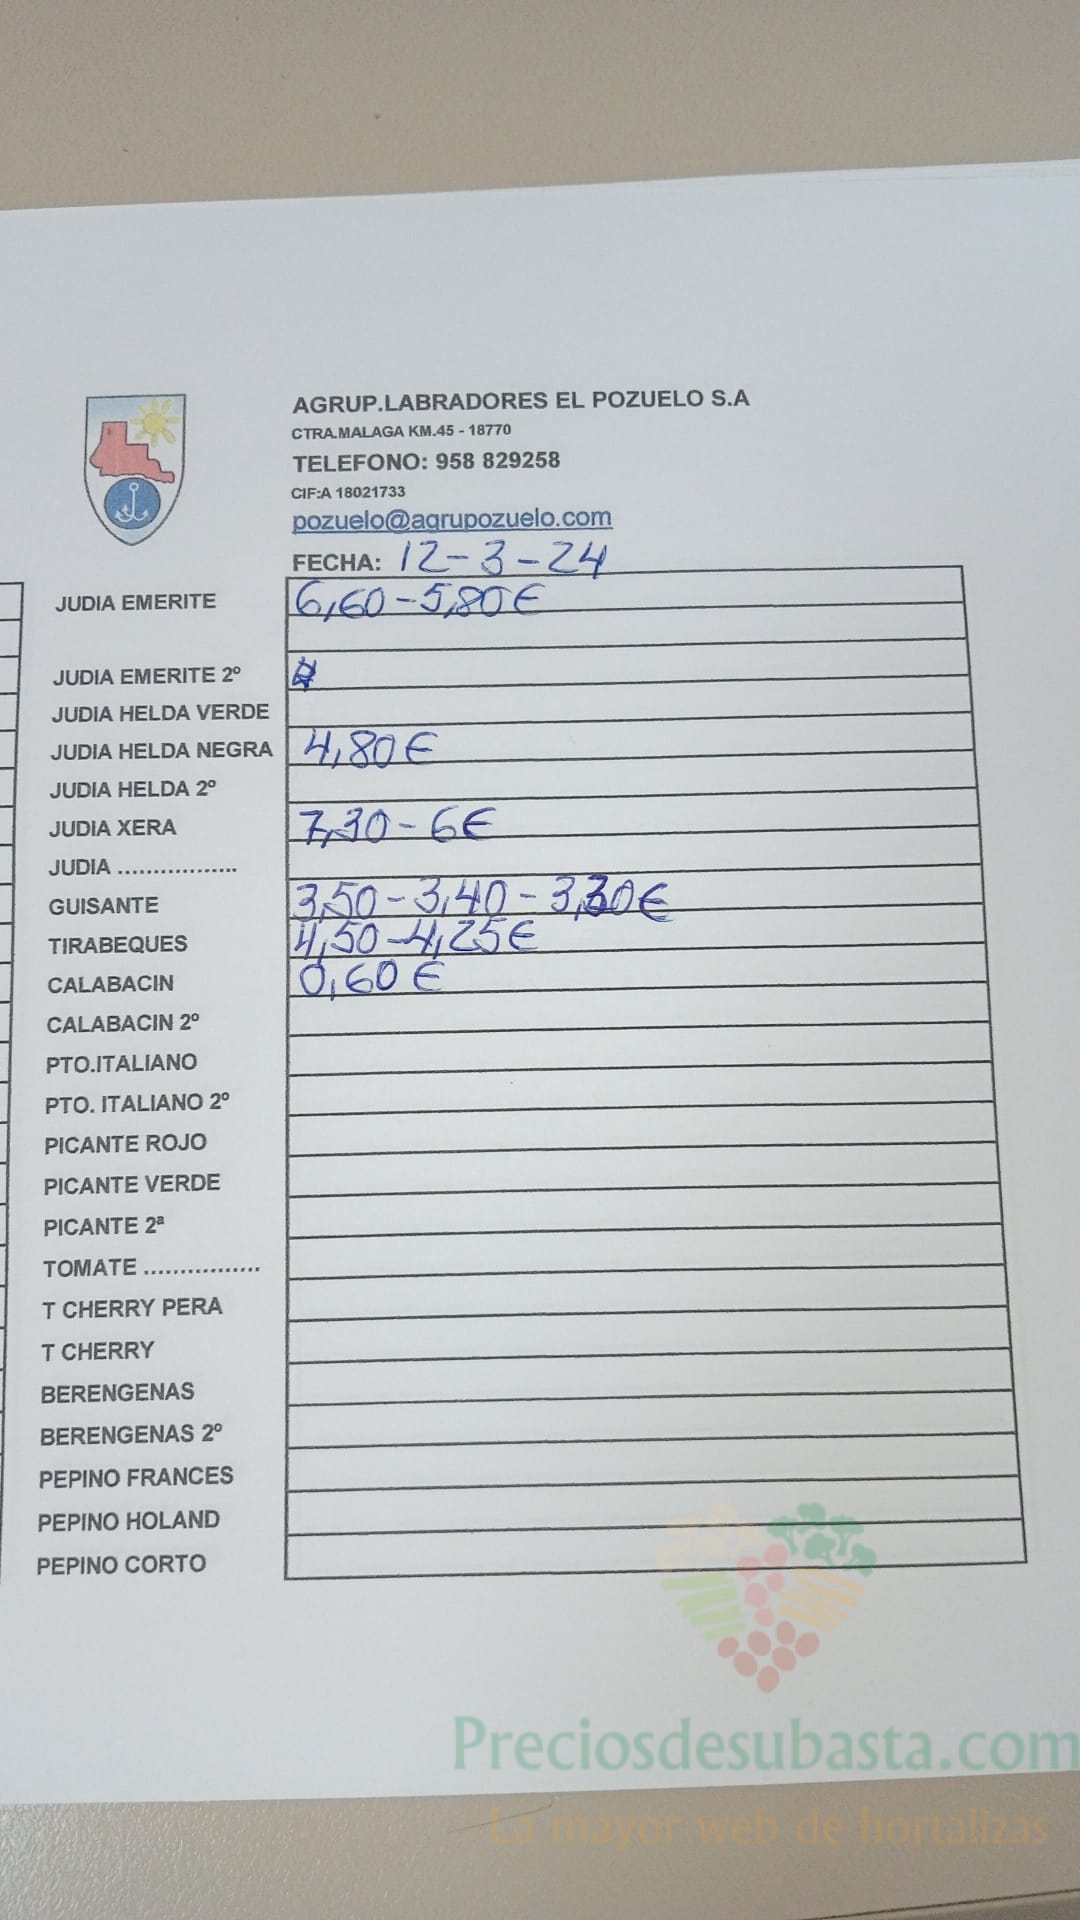 AGRUP.LABRADORES EL POZUELO S.A
CTRA.MALAGA KM.45 - 18770
TELEFONO: 958 829258
CIF:A 18021733
pozuelo@agrupozuelo.com
FECHA: 12-3-24
JUDIA EMERITE 6,60-5,80€
JUDIA EMERITE 2º
JUDIA HELDA VERDE
JUDIA HELDA NEGRA 4,80€
JUDIA HELDA 2º
JUDIA XERA 7,30-6€
JUDIA ..................
GUISANTE 3,50-3,40-3,30€
TIRABEQUES 4,50-4,25€
CALABACIN 0,60€
CALABACIN 2º
PTO.ITALIANO
PTO. ITALIANO 2º
PICANTE ROJO
PICANTE VERDE
PICANTE 2ª
TOMATE ................
T CHERRY PERA
T CHERRY
BERENGENAS
BERENGENAS 2º
PEPINO FRANCES
PEPINO HOLAND
PEPINO CORTO
Preciosdesubasta.com
La mayor web de hortalizas